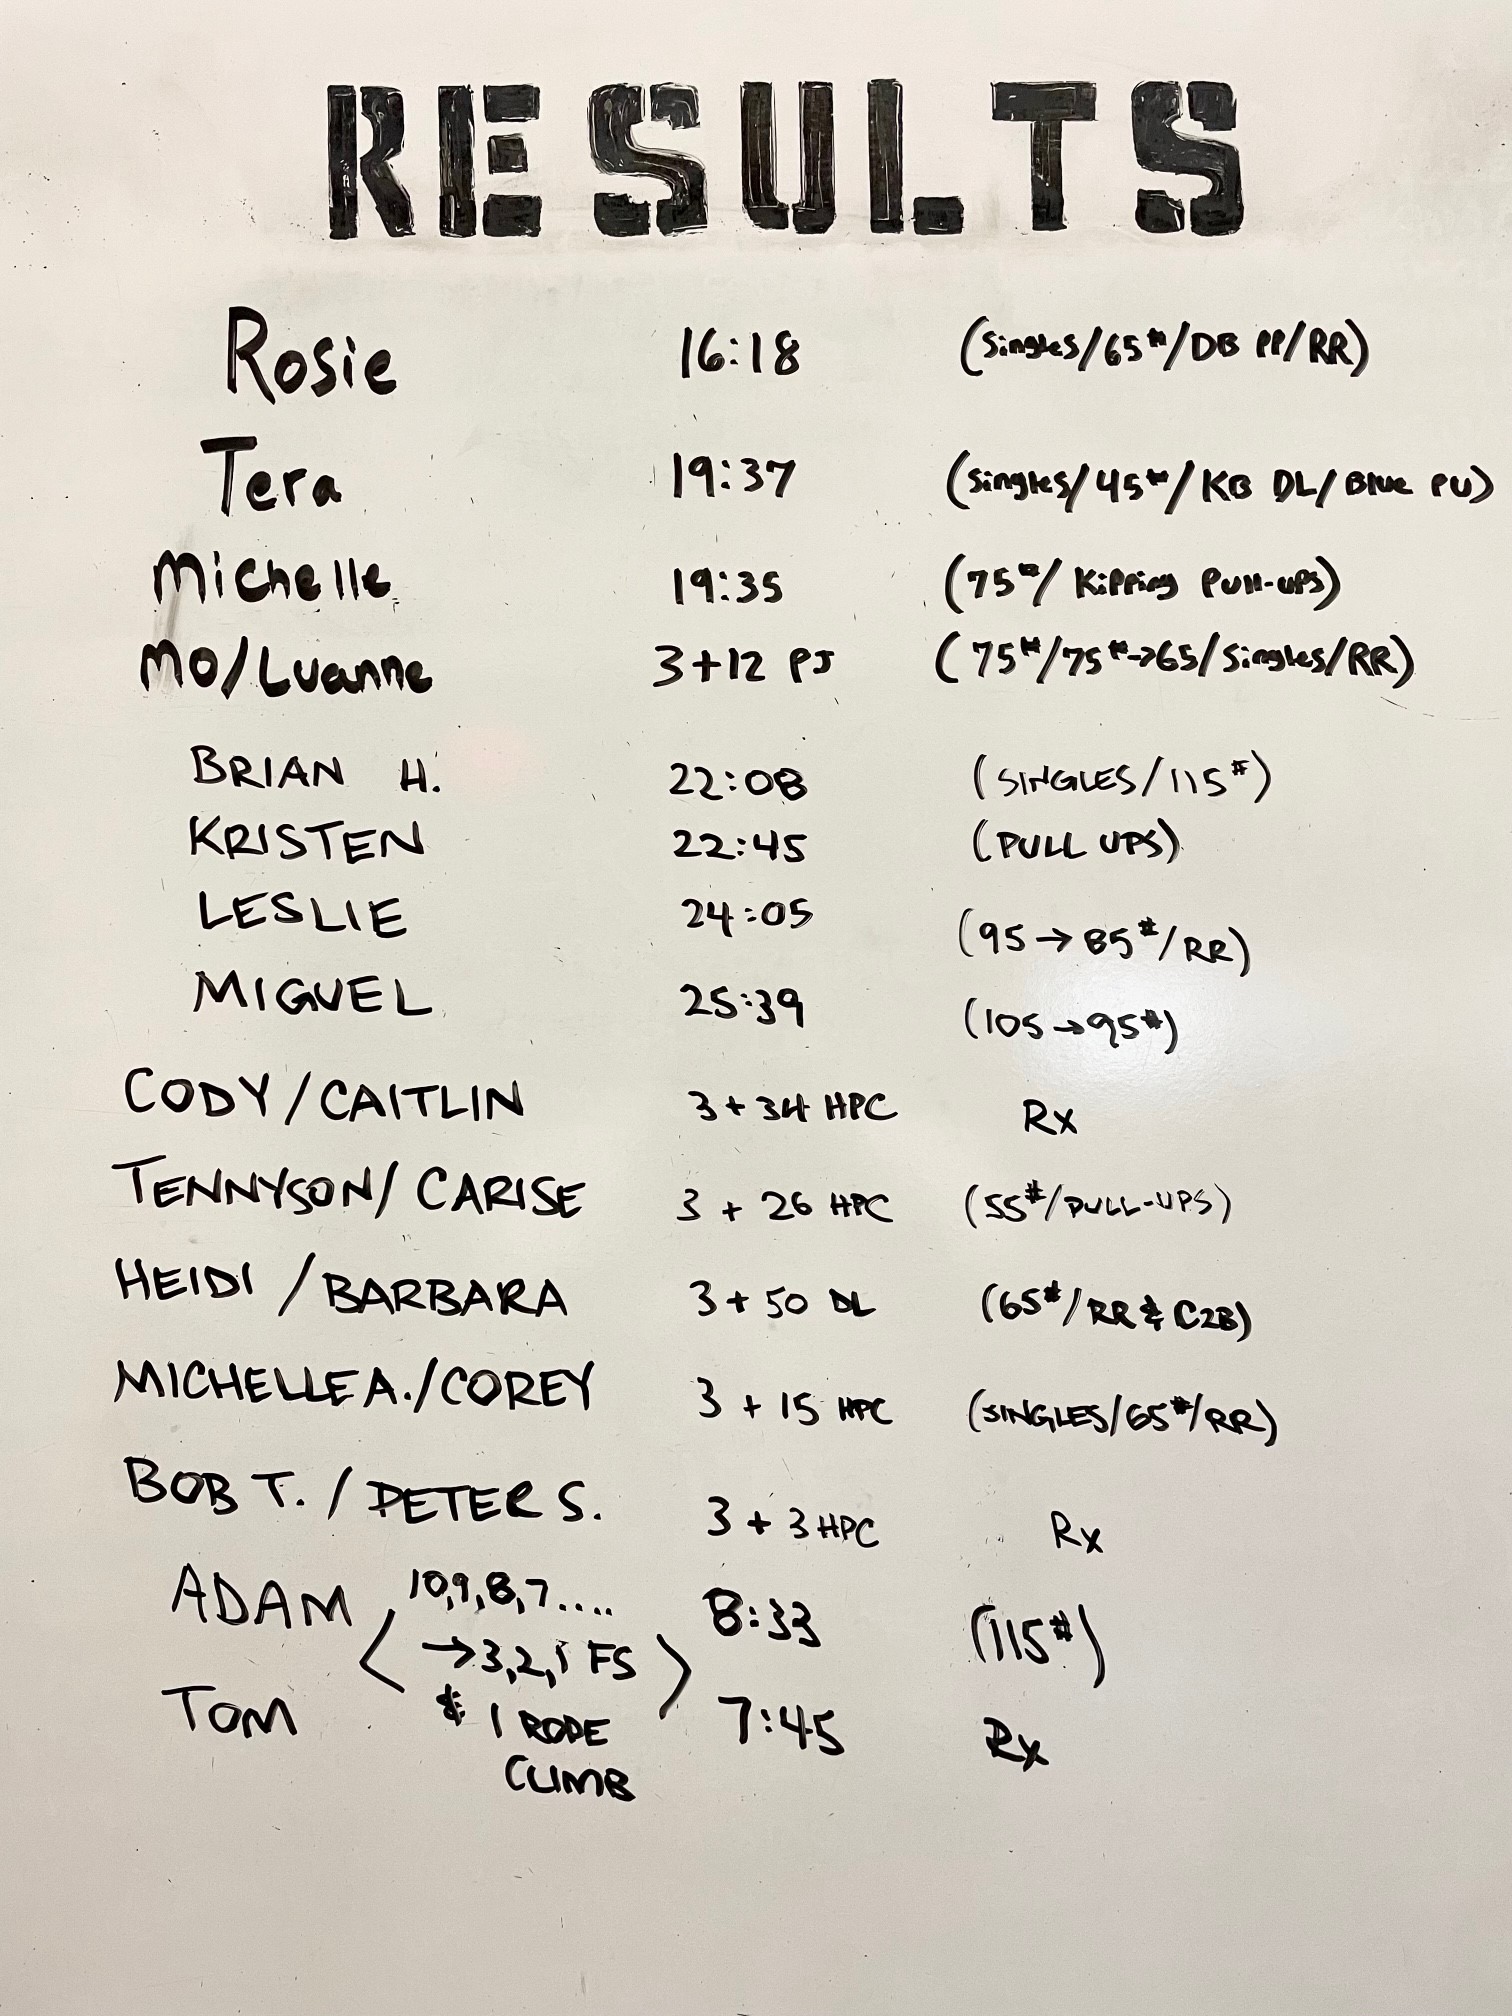 RESULTS
Rosie 16:18 (Singles/65#/DB PP/RR)
Tera 19:37 (Singles/45#/KB DL/Blue PU)
Michelle 19:35 (75#/Kipping Pull-ups)
Mo/Luanne 3+12 PJ (75#/75#→65/Singles/RR)
BRIAN H. 22:08 (SINGLES/115#)
KRISTEN 22:45 (PULL UPS)
LESLIE 24:05 (95→85#/RR)
MIGUEL 25:39 (105→95#)
CODY/CAITLIN 3+34 HPC Rx
TENNYSON/CARISE 3 + 26 HPC (55#/PULL-UPS)
HEIDI/BARBARA 3+50 DL (65#/RR & C2B)
MICHELLE A./COREY 3 + 15 HPC (SINGLES/65#/RR)
BOB T./PETER S. 3 + 3 HPC Rx
ADAM 10,9,8,7.... 8:33 (115#)
→3,2,1 FS
TOM & 1 ROPE 7:45 Rx
CLIMB